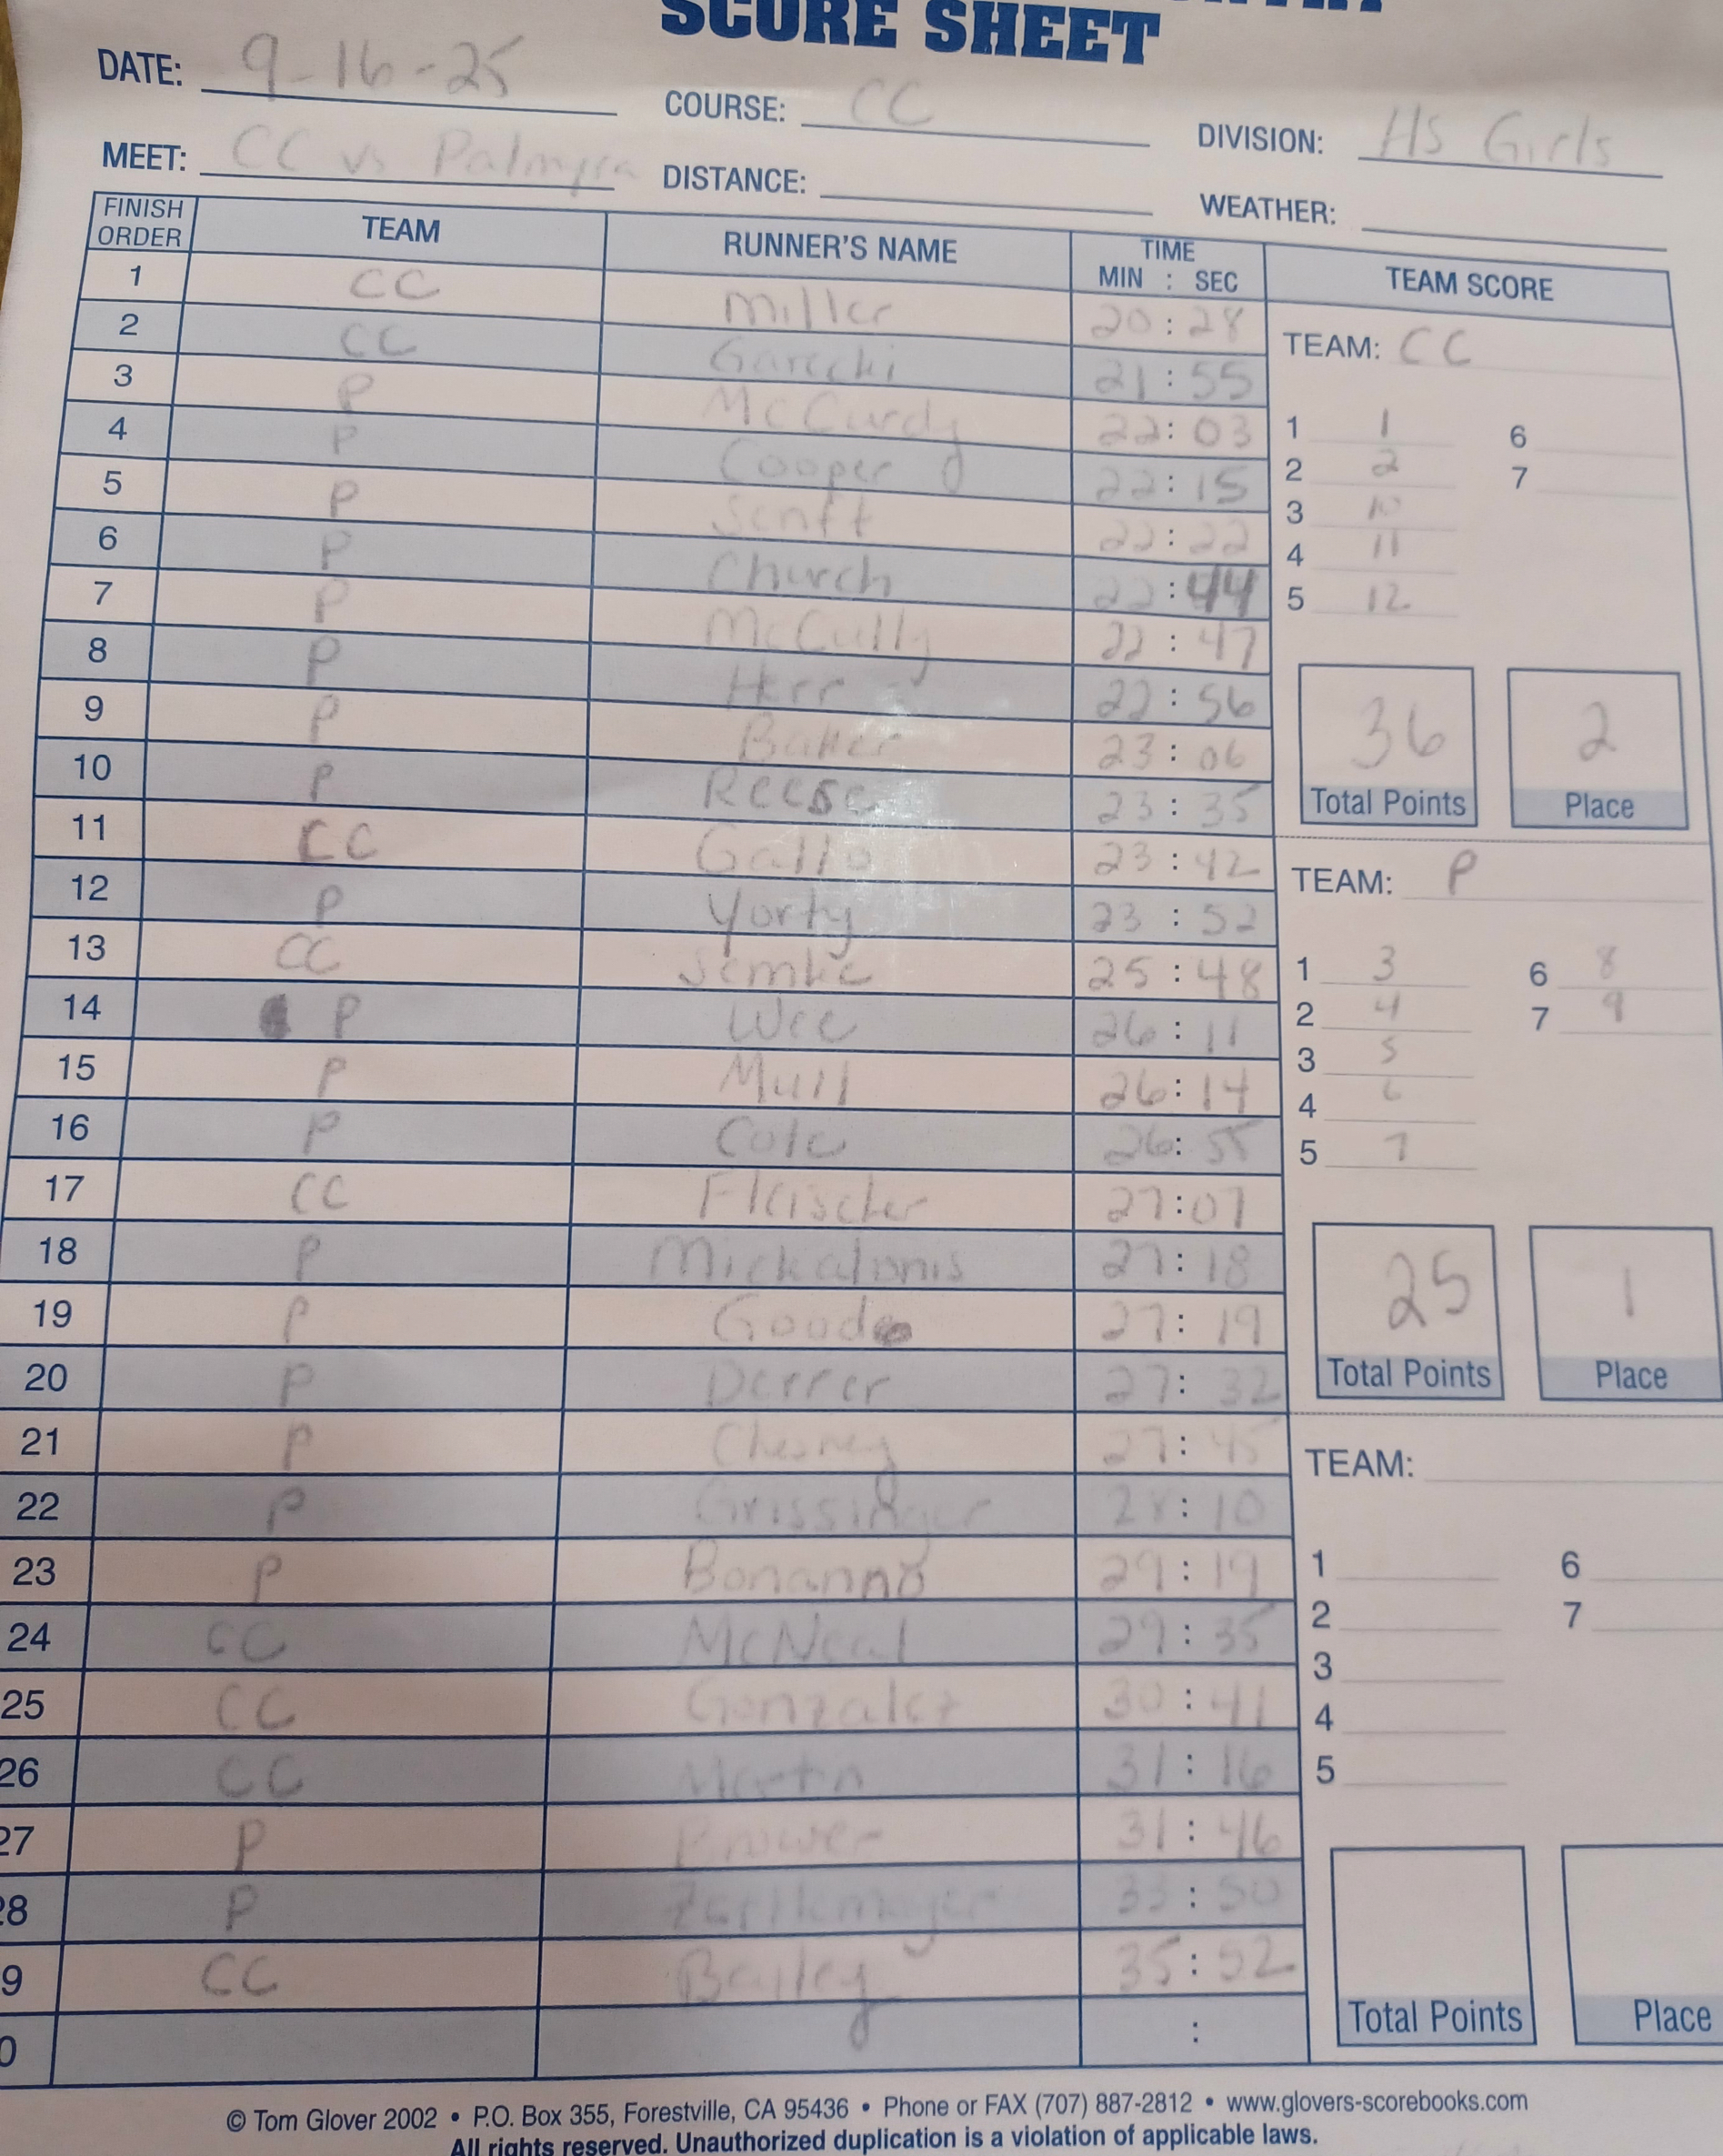 SCORE SHEET
DATE: 9-16-25 COURSE: CC DIVISION: HS Girls
MEET: CC vs Palmyra DISTANCE: WEATHER:
FINISH ORDER TEAM RUNNER'S NAME TIME MIN : SEC TEAM SCORE
1 CC Miller 20:28
2 CC Garecki 21:55
3 P McCurdy 22:03
4 P Cooper 22:15
5 P Senft 22:22
6 P Church 22:44
7 P McCully 22:47
8 P Herr 22:56
9 P Baker 23:06
10 P Reese 23:35
11 CC Gallo 23:42
12 P Yorty 23:52
13 CC Semke 25:48
14 P Wee 26:11
15 P Mull 26:14
16 P Cole 26:55
17 CC 27:07
18 P Mickalonis 27:18
19 P Good 27:19
20 P Derrer 27:32
21 P Chesney 27:45
22 P Grissinger 28:10
23 P Bonanno 29:19
24 CC McNeal 29:35
25 CC Gonzalez 30:41
26 CC Martin 31:16
27 P Brower 31:46
28 P 33:50
9 CC Bailey 35:52
0 :
TEAM: CC
1 1 6
2 2 7
3 10
4 11
5 12
36 2
Total Points Place
TEAM: P
1 3 6 8
2 4 7 9
3 5
4 6
5 7
25 1
Total Points Place
TEAM:
1 6
2 7
3
4
5
Total Points Place
© Tom Glover 2002 • P.O. Box 355, Forestville, CA 95436 • Phone or FAX (707) 887-2812 • www.glovers-scorebooks.com
All rights reserved. Unauthorized duplication is a violation of applicable laws.